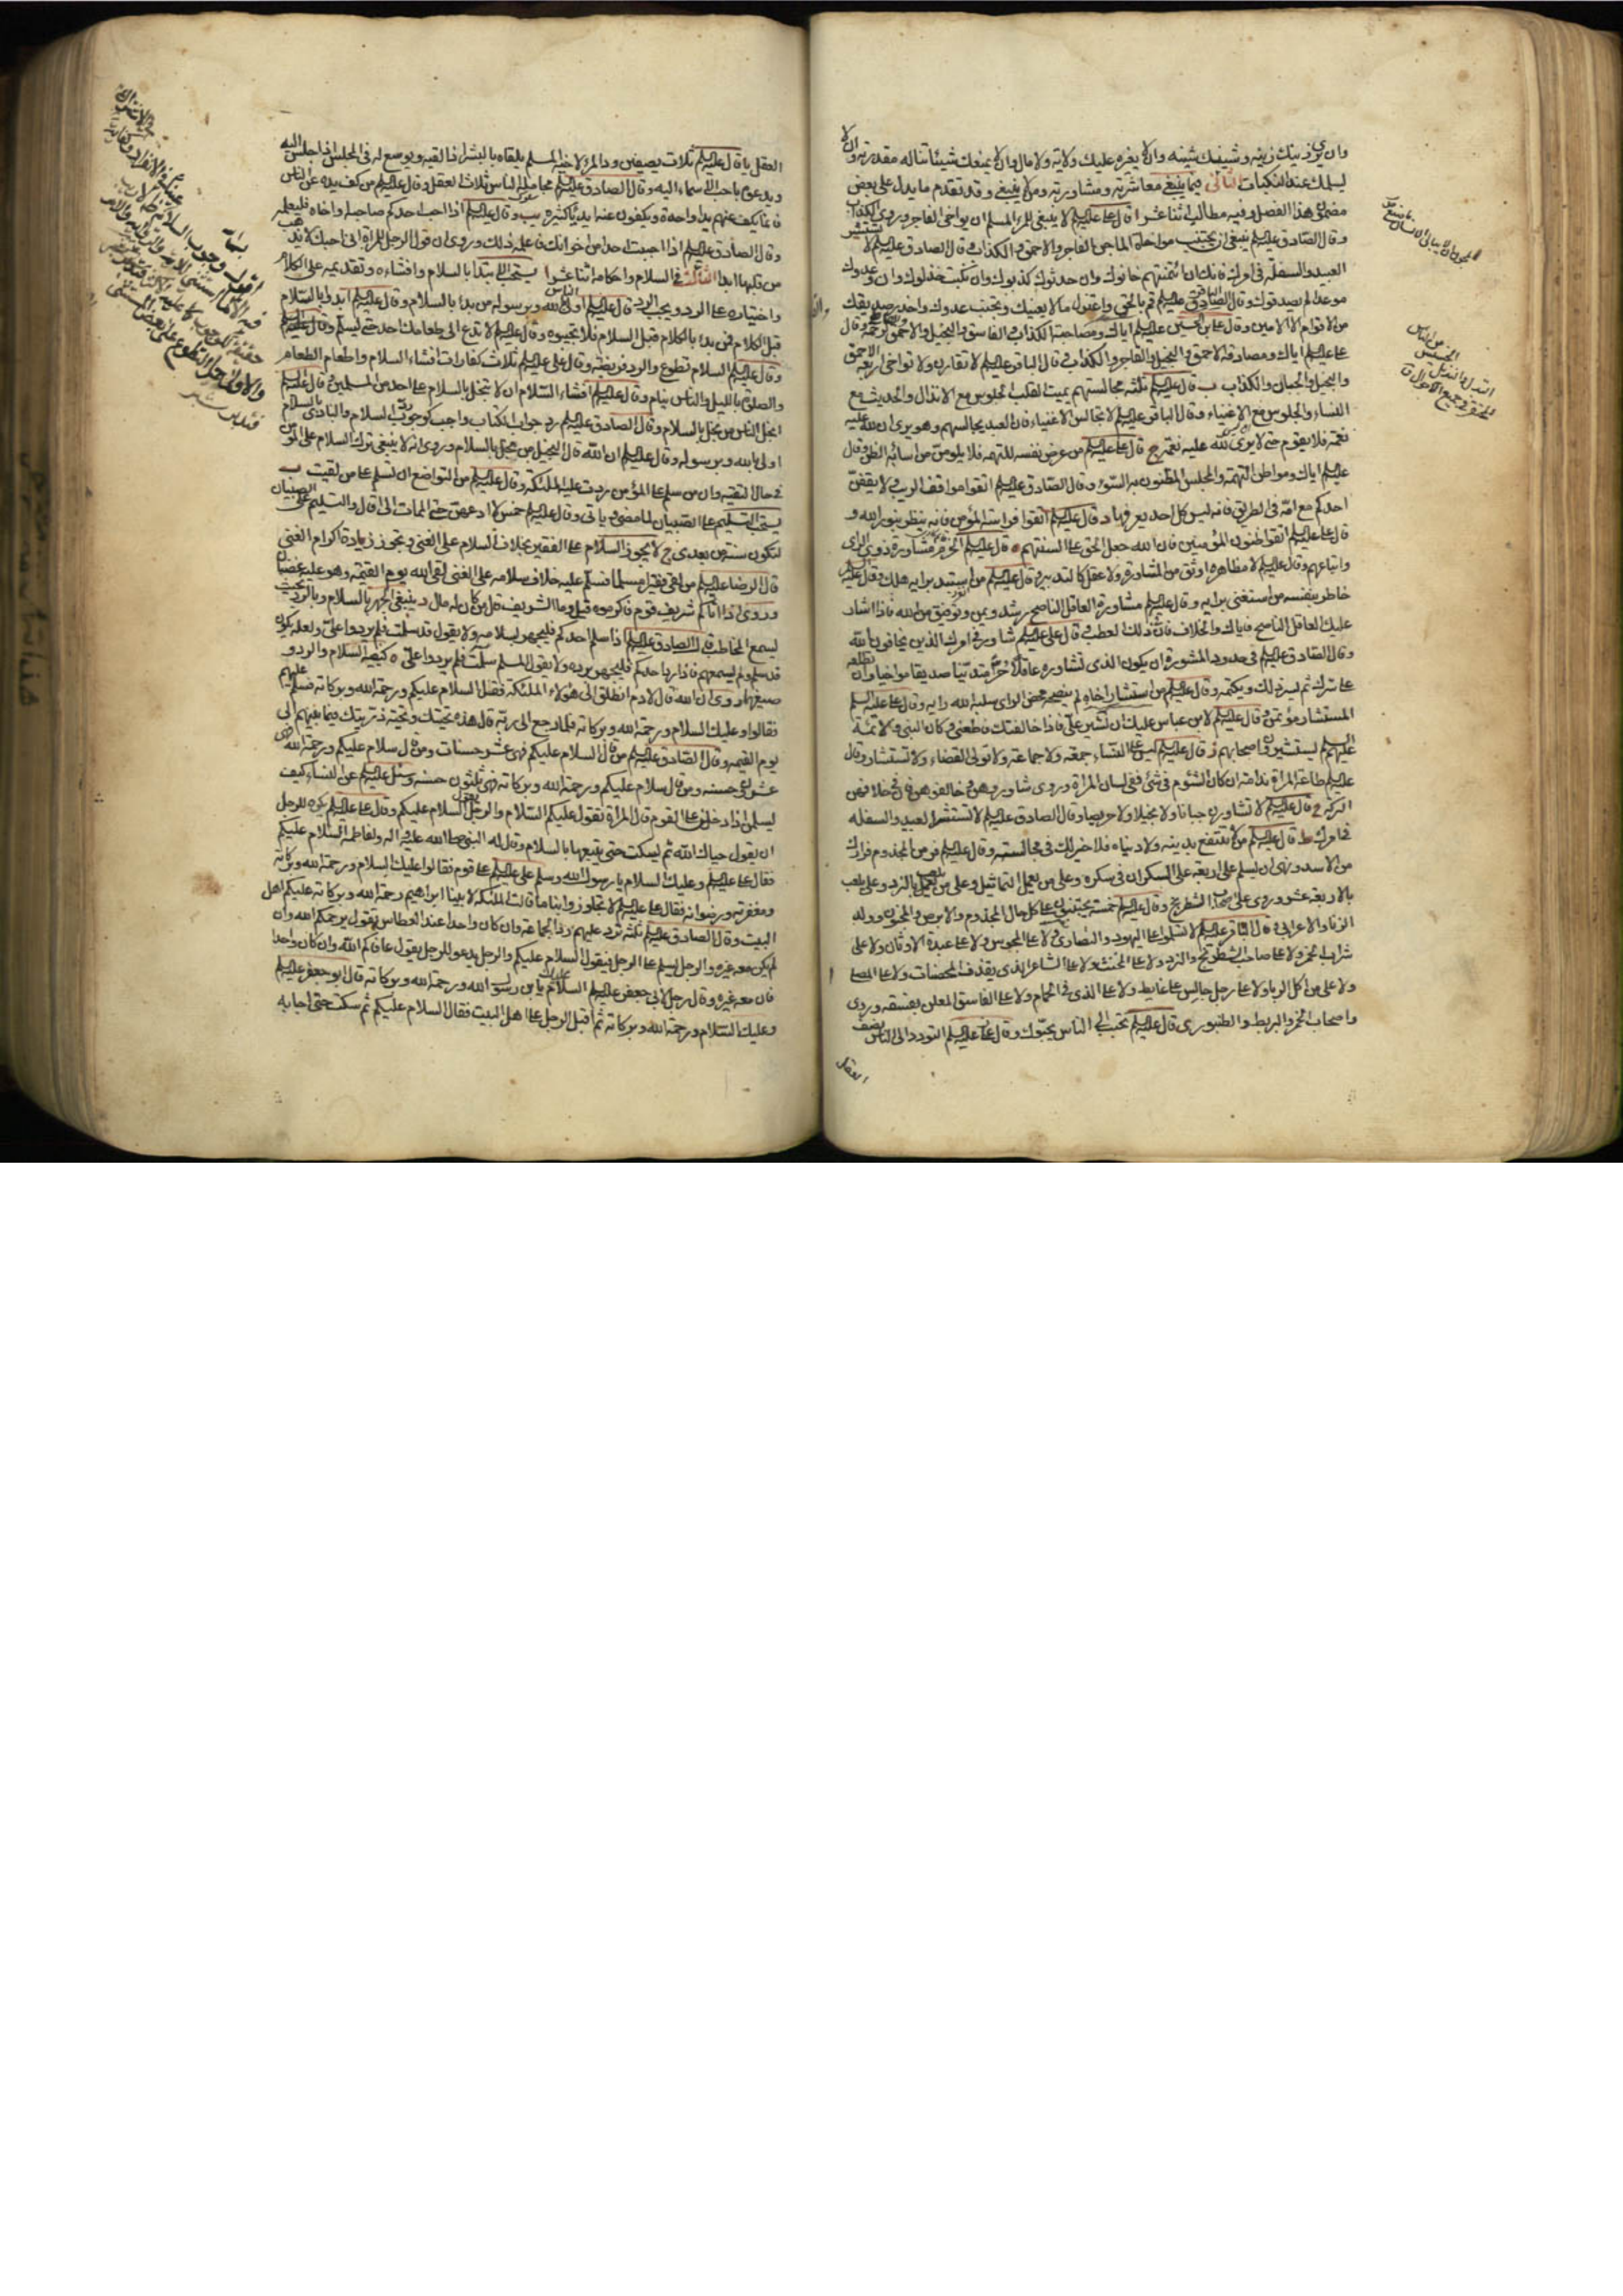 وان يرى زينك زينه وشينك شينه وان لا يغره عليك ولاية ولا مال وان لا يمنعك شيئا تناله مقدرته وان لا
يسلمك عند النكبات الثاني فيما ينبغي معاشرته ومشاورته ومن لا ينبغي وقد تقدم ما يدل على بعض
مضمون هذا الفصل وفيه مطالب اثنا عشر ا قال علي عليه السلم لا ينبغي للمرء المسلم ان يواخي الفاجر وروي الكذاب
وقال الصادق عليه السلم ينبغي ان يجتنب مواخاة الماجن الفاجر والاحمق والكذاب وقال الصادق عليه السلم لا تستشر
العبيد والسفلة في امرك فانك ان ائتمنتهم خانوك وان حدثوك كذبوك وان نكبت خذلوك وان وعدوك
موعدا لم يصدقوك وقال عليه السلم قم بالحق واعتزل ما لا يعنيك وتجنب عدوك واحذر صديقك
من الاقوام الا الامين وقال علي بن الحسين عليه السلم اياك ومصاحبة الكذاب والفاسق والبخيل والاحمق وقال
علي عليه السلم اياك ومصادقة الاحمق والبخيل والفاجر والكذاب وقال الباقر عليه السلم لا تقارن ولا تواخي اربعة الاحمق
والبخيل والجبان والكذاب ب قال عليه السلم ثلثة مجالستهم يميت القلب الجلوس مع الانذال والحديث مع
النساء والجلوس مع الاغنياء وقال الباقر عليه السلم لا تجالس الاغنياء فان العبد يجالسهم وهو يرى ان لله عليه
نعمة فلا يقوم حتى لا يرى لله عليه نعمة ج قال علي عليه السلم من عرض نفسه للتهمة فلا يلومن من اساء به الظن وقال
عليه السلم اياك ومواطن التهمة والمجلس المظنون به السوء وقال الصادق عليه السلم اتقوا مواقف الريب ولا يقفن
احدكم مع امه في الطريق فانه ليس كل احد يعرفها د قال عليه السلم اتقوا فراسة المؤمن فانه ينظر بنور الله و
قال علي عليه السلم اتقوا ظنون المؤمنين فان الله جعل الحق على السنتهم ه قال عليه السلم الحزم مشاورة ذوي الراي
واتباعهم وقال عليه السلم لا مظاهرة اوثق من المشاورة ولا عقل كالتدبير وقال عليه السلم من استبد برايه هلك وقال عليه السلم
خاطر بنفسه من استغنى برايه وقال عليه السلم مشاورة العاقل الناصح رشد ويمن وتوفيق من الله فاذا اشار
عليك العاقل الناصح فاياك والخلاف فان ذلك العطب وقال علي عليه السلم شاور في امرك الذين يخافون الله
وقال الصادق عليه السلم في حدود المشورة ان يكون الذي تشاوره عاقلا حرا متدينا صديقا مواخيا وان تطلعه
على سرك ثم يسر ذلك ويكتمه وقال عليه السلم من استشار اخاه لم ينصحه محض الراي سلبه الله رايه وقال علي عليه السلم
المستشار مؤتمن وقال عليه السلم لابن عباس عليك ان تشير علي فاذا خالفتك فاطعني وكان النبي والائمة
عليهم السلم يستشيرون اصحابهم ز قال عليه السلم ليس على النساء جمعة ولا جماعة ولا تولي القضاء ولا تستشار وقال
عليه السلم طاعة المراة ندامة ان كان الشوم في شيء ففي لسان المراة وروي شاوروهن وخالفوهن فان في خلافهن
البركة ح قال عليه السلم لا تشاورن جبانا ولا بخيلا ولا حريصا وقال الصادق عليه السلم لا تستشر العبيد والسفلة
في امرك ط قال عليه السلم من لا تنتفع بدينه ولا دنياه فلا خير لك في مجالسته وقال عليه السلم فر من المجذوم فرارك
من الاسد ونهى ان يسلم على اربعة على السكران في سكره وعلى من يعمل التماثيل وعلى من يلعب بالنرد وعلى من يلعب
بالاربعة عشر وروي على صاحب الشطرنج وقال عليه السلم خمسة يجتنبون على كل حال المجذوم والابرص والمجنون وولد
الزنا والاعرابي وقال الباقر عليه السلم لا تسلموا على اليهود والنصارى ولا على المجوس ولا على عبدة الاوثان ولا على
شراب الخمر ولا على صاحب الشطرنج والنرد ولا على المخنث ولا على الشاعر الذي يقذف المحصنات ولا على المصلي
ولا على من اكل الربا ولا على رجل جالس على غايط ولا على الذي في الحمام ولا على الفاسق المعلن بفسقه وروي
واصحاب الخمر والبربط والطنبور ي قال عليه السلم تحبب الى الناس يحبوك وقال علي عليه السلم التودد الى الناس نصف
العقل
العقل يا قال عليه السلم ثلاث يصفين ود المرء لاخيه المسلم يلقاه بالبشر اذا لقيه ويوسع له في المجلس اذا جلس اليه
ويدعوه باحب الاسماء اليه وقال الصادق عليه السلم مجاملة الناس ثلث العقل وقال عليه السلم من كف يده عن الناس
فانما يكف عنهم يدا واحدة ويكفون عنه ايديا كثيرة يب وقال عليه السلم اذا احب احدكم صاحبه او اخاه فليعلمه
وقال الصادق عليه السلم اذا احببت احدا من اخوانك فاعلمه ذلك وروي ان قول الرجل للمراة اني احبك لا يذهب
من قلبها ابدا الثالث في السلام واحكامه اثنا عشر ا يستحب الابتدا بالسلام وافشاءه وتقديمه على الكلام
واختياره على الرد ويجب الرد قال عليه السلم اولى الناس بالله وبرسوله من بدا بالسلام وقال عليه السلم ابدوا بالسلام
قبل الكلام فمن بدا بالكلام قبل السلام فلا تجيبوه وقال عليه السلم لا تدع الى طعامك احدا حتى يسلم وقال عليه السلم
وقال عليه السلم السلام تطوع والرد فريضة وقال علي عليه السلم ثلاث كفارات افشاء السلام واطعام الطعام
والصلوة بالليل والناس نيام وقال عليه السلم افشاء السلام ان لا تبخل بالسلام على احد من المسلمين وقال عليه السلم
ابخل الناس من بخل بالسلام وقال الصادق عليه السلم رد جواب الكتاب واجب كوجوب رد السلام والبادي بالسلام
اولى بالله وبرسوله وقال عليه السلم ان الله قال البخيل من يبخل بالسلام وروي انه لا ينبغي ترك السلام على المؤمن
في حال التقية وان من سلم على المؤمن ردت عليه الملئكة وقال عليه السلم من التواضع ان تسلم على من لقيت ب
يستحب التسليم على الصبيان لما مضى وياتي وقال عليه السلم خمس لا ادعهن حتى الممات الى ان قال والتسليم على الصبيان
لتكون سنة من بعدي ج لا يجوز السلام على الفقير بخلاف السلام على الغني ويجوز زيادة اكرام الغني
قال الرضا عليه السلم من لقي فقيرا مسلما فسلم عليه خلاف سلامه على الغني لقي الله يوم القيمة وهو عليه غضبان
وروي اذا اتاكم شريف قوم فاكرموه قيل وما الشريف قال من كان له مال د ينبغي الجهر بالسلام وبالرد بحيث
يسمع المخاطب قال الصادق عليه السلم اذا سلم احدكم فليجهر بسلامه ولا يقول قد سلمت فلم يردوا علي ولعله يكون
قد سلم ولم يسمعهم فاذا رد احدكم فليجهر برده ولا يقول المسلم سلمت فلم يردوا علي ه كيفية السلام والرد و
صيغهما روي ان الله قال لادم انطلق الى هؤلاء الملئكة فقل السلام عليكم ورحمة الله وبركاته فسلم عليهم
فقالوا وعليك السلام ورحمة الله وبركاته فلما رجع الى ربه قال هذه تحيتك وتحية ذريتك فيما بينهم الى
يوم القيمة وقال الصادق عليه السلم من قال السلام عليكم فهي عشر حسنات ومن قال سلام عليكم ورحمة الله فهي
عشرون حسنة ومن قال سلام عليكم ورحمة الله وبركاته فهي ثلثون حسنة وسئل عليه السلم عن النساء كيف
يسلمن اذا دخلن على القوم قال المراة تقول عليكم السلام والرجل يقول السلام عليكم وقال علي عليه السلم يكره للرجل
ان يقول حياك الله ثم يسكت حتى يتبعها بالسلام وقال له النبي صلى الله عليه واله ولفاطمة السلام عليكم
فقال علي عليه السلم وعليك السلام يا رسول الله وسلم علي عليه السلم على قوم فقالوا عليك السلام ورحمة الله وبركاته
ومغفرته ورضوانه فقال علي عليه السلم لا تجاوزوا بنا ما قالت الملئكة لابينا ابراهيم رحمة الله وبركاته عليكم اهل
البيت وقال الصادق عليه السلم ثلثة ترد عليهم رد الجماعة وان كان واحدا عند العطاس يقول يرحمكم الله وان
لم يكن معه غيره والرجل يسلم على الرجل فيقول السلام عليكم والرجل يدعو للرجل يقول عافاكم الله وان كان واحدا
فان معه غيره وقال رجل لابي جعفر عليه السلم السلام عليك يابن رسول الله ورحمة الله وبركاته قال ابو جعفر عليه السلم
وعليك السلام ورحمة الله وبركاته ثم اقبل الرجل على اهل البيت فقال السلام عليكم ثم سكت حتى اجابه